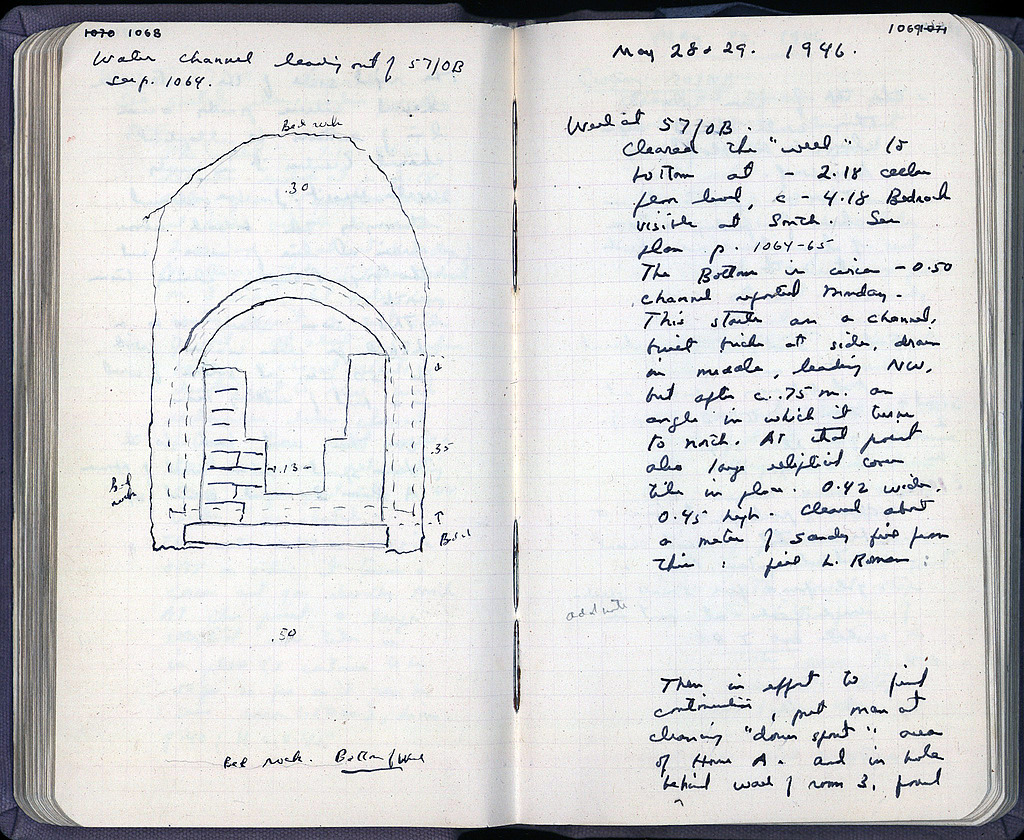 1070 1068
Water channel leading out of 57/OB
see p. 1064.
Bed rock
.30
.35
.13
Bed
rock
Bed
.50
Bed rock. Bottom of Well
1069 1071
May 28 & 29. 1946.
Well at 57/OB.
Cleared the "well" to
bottom at - 2.18 below
floor level, c - 4.18 Bedrock
visible at South. See
plan p. 1064-65
The Bottom is circa - 0.50
channel reported Monday.
This starts as a channel,
built bricks at sides, drain
in middle, leading NW,
but after c. .75 m. an
angle in which it turns
to north. At that point
also large elliptical cover
tile in place. 0.42 wide,
0.45 high. Cleared about
a meter of sandy fill from
this : fill L. Roman :
add note
Then in effort to find
continuation, put man at
cleaning "down spout" area
of House A. and in hole
behind wall of room 3, found